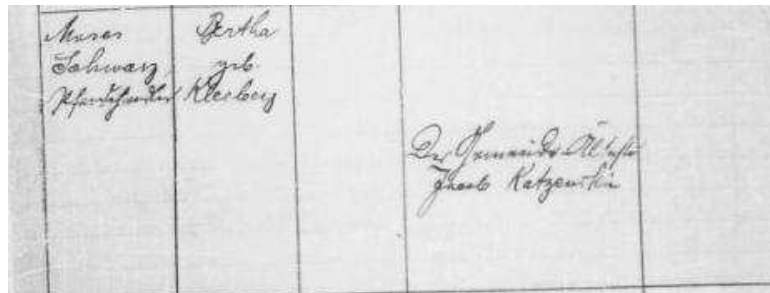 Moses
Schwarz,
Pferdehändler
Bertha
geb.
Kleeberg
Der Gemeinde Älteste
Jacob Katzenstein